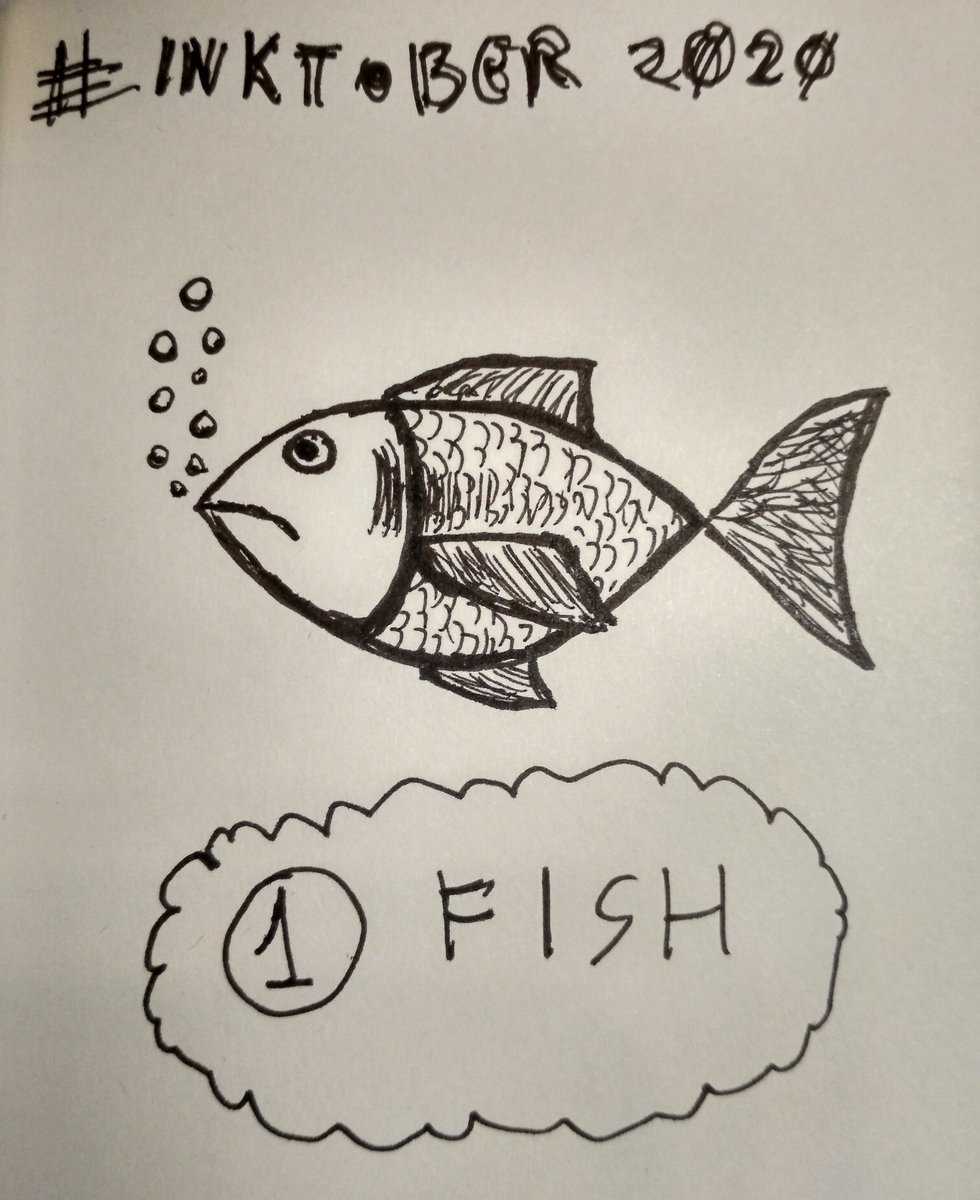 #INKTOBER 2020
1 FISH